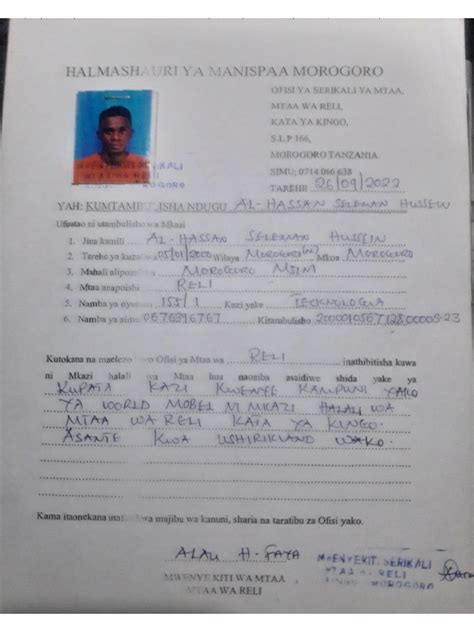 HALMASHAURI YA MANISPAA MOROGORO
OFISI YA SERIKALI YA MTAA,
MTAA WA RELI,
KATA YA KINGO,
S.L.P 166,
MOROGORO TANZANIA.
SIMU; 0714 066 638
TAREHE 26/09/2022
YAH: KUMTAMBULISHA NDUGU AL-HASSAN SELEMAN HUSSEIN
Ufuatao ni utambulisho wa Mkazi
1. Jina kamili AL-HASSAN SELEMAN HUSSEIN
2. Tarehe ya kuzaliwa 05/01/2000 Wilaya MOROGORO (M) Mkoa MOROGORO
3. Mahali alipozaliwa MOROGORO MJINI
4. Mtaa anapoishi RELI
5. Namba ya nyumba 155/1 Kazi yake TECKNOLOGIA
6. Namba ya simu 0676396767 Kitambulisho
Kutokana na maelezo Ofisi ya Mtaa wa RELI inathibitisha kuwa
ni Mkazi halali wa Mtaa huu naomba asaidiwe shida yake ya
KUPATA KAZI KWENYE KAMPUNI YAKO
YA WORLD MOBEL NI MKAZI HALALI WA
MTAA WA RELI KATA YA KINGO.
ASANTE KWA USHIRIKIANO WAKO.
Kama itaonekana kwa majibu wa kanuni, sharia na taratibu za Ofisi yako.
H. FAYA
MWENYEKIT. SERIKALI
RELI
MOROGORO
MWENYE KITI WA MTAA
MTAA WA RELI